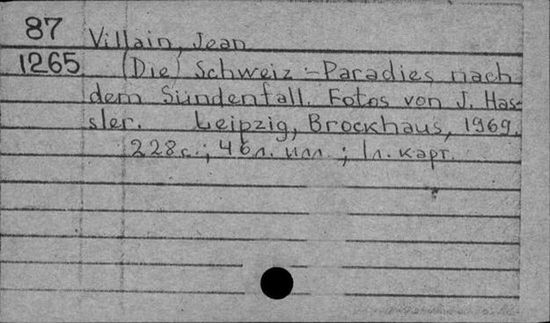 87 Villain, Jean
1265 (Die) Schweiz - Paradies nach
dem Sündenfall. Fotos von J. Has-
sler. Leipzig, Brockhaus, 1969.
228с.; 46л. илл.; 1л. карт.